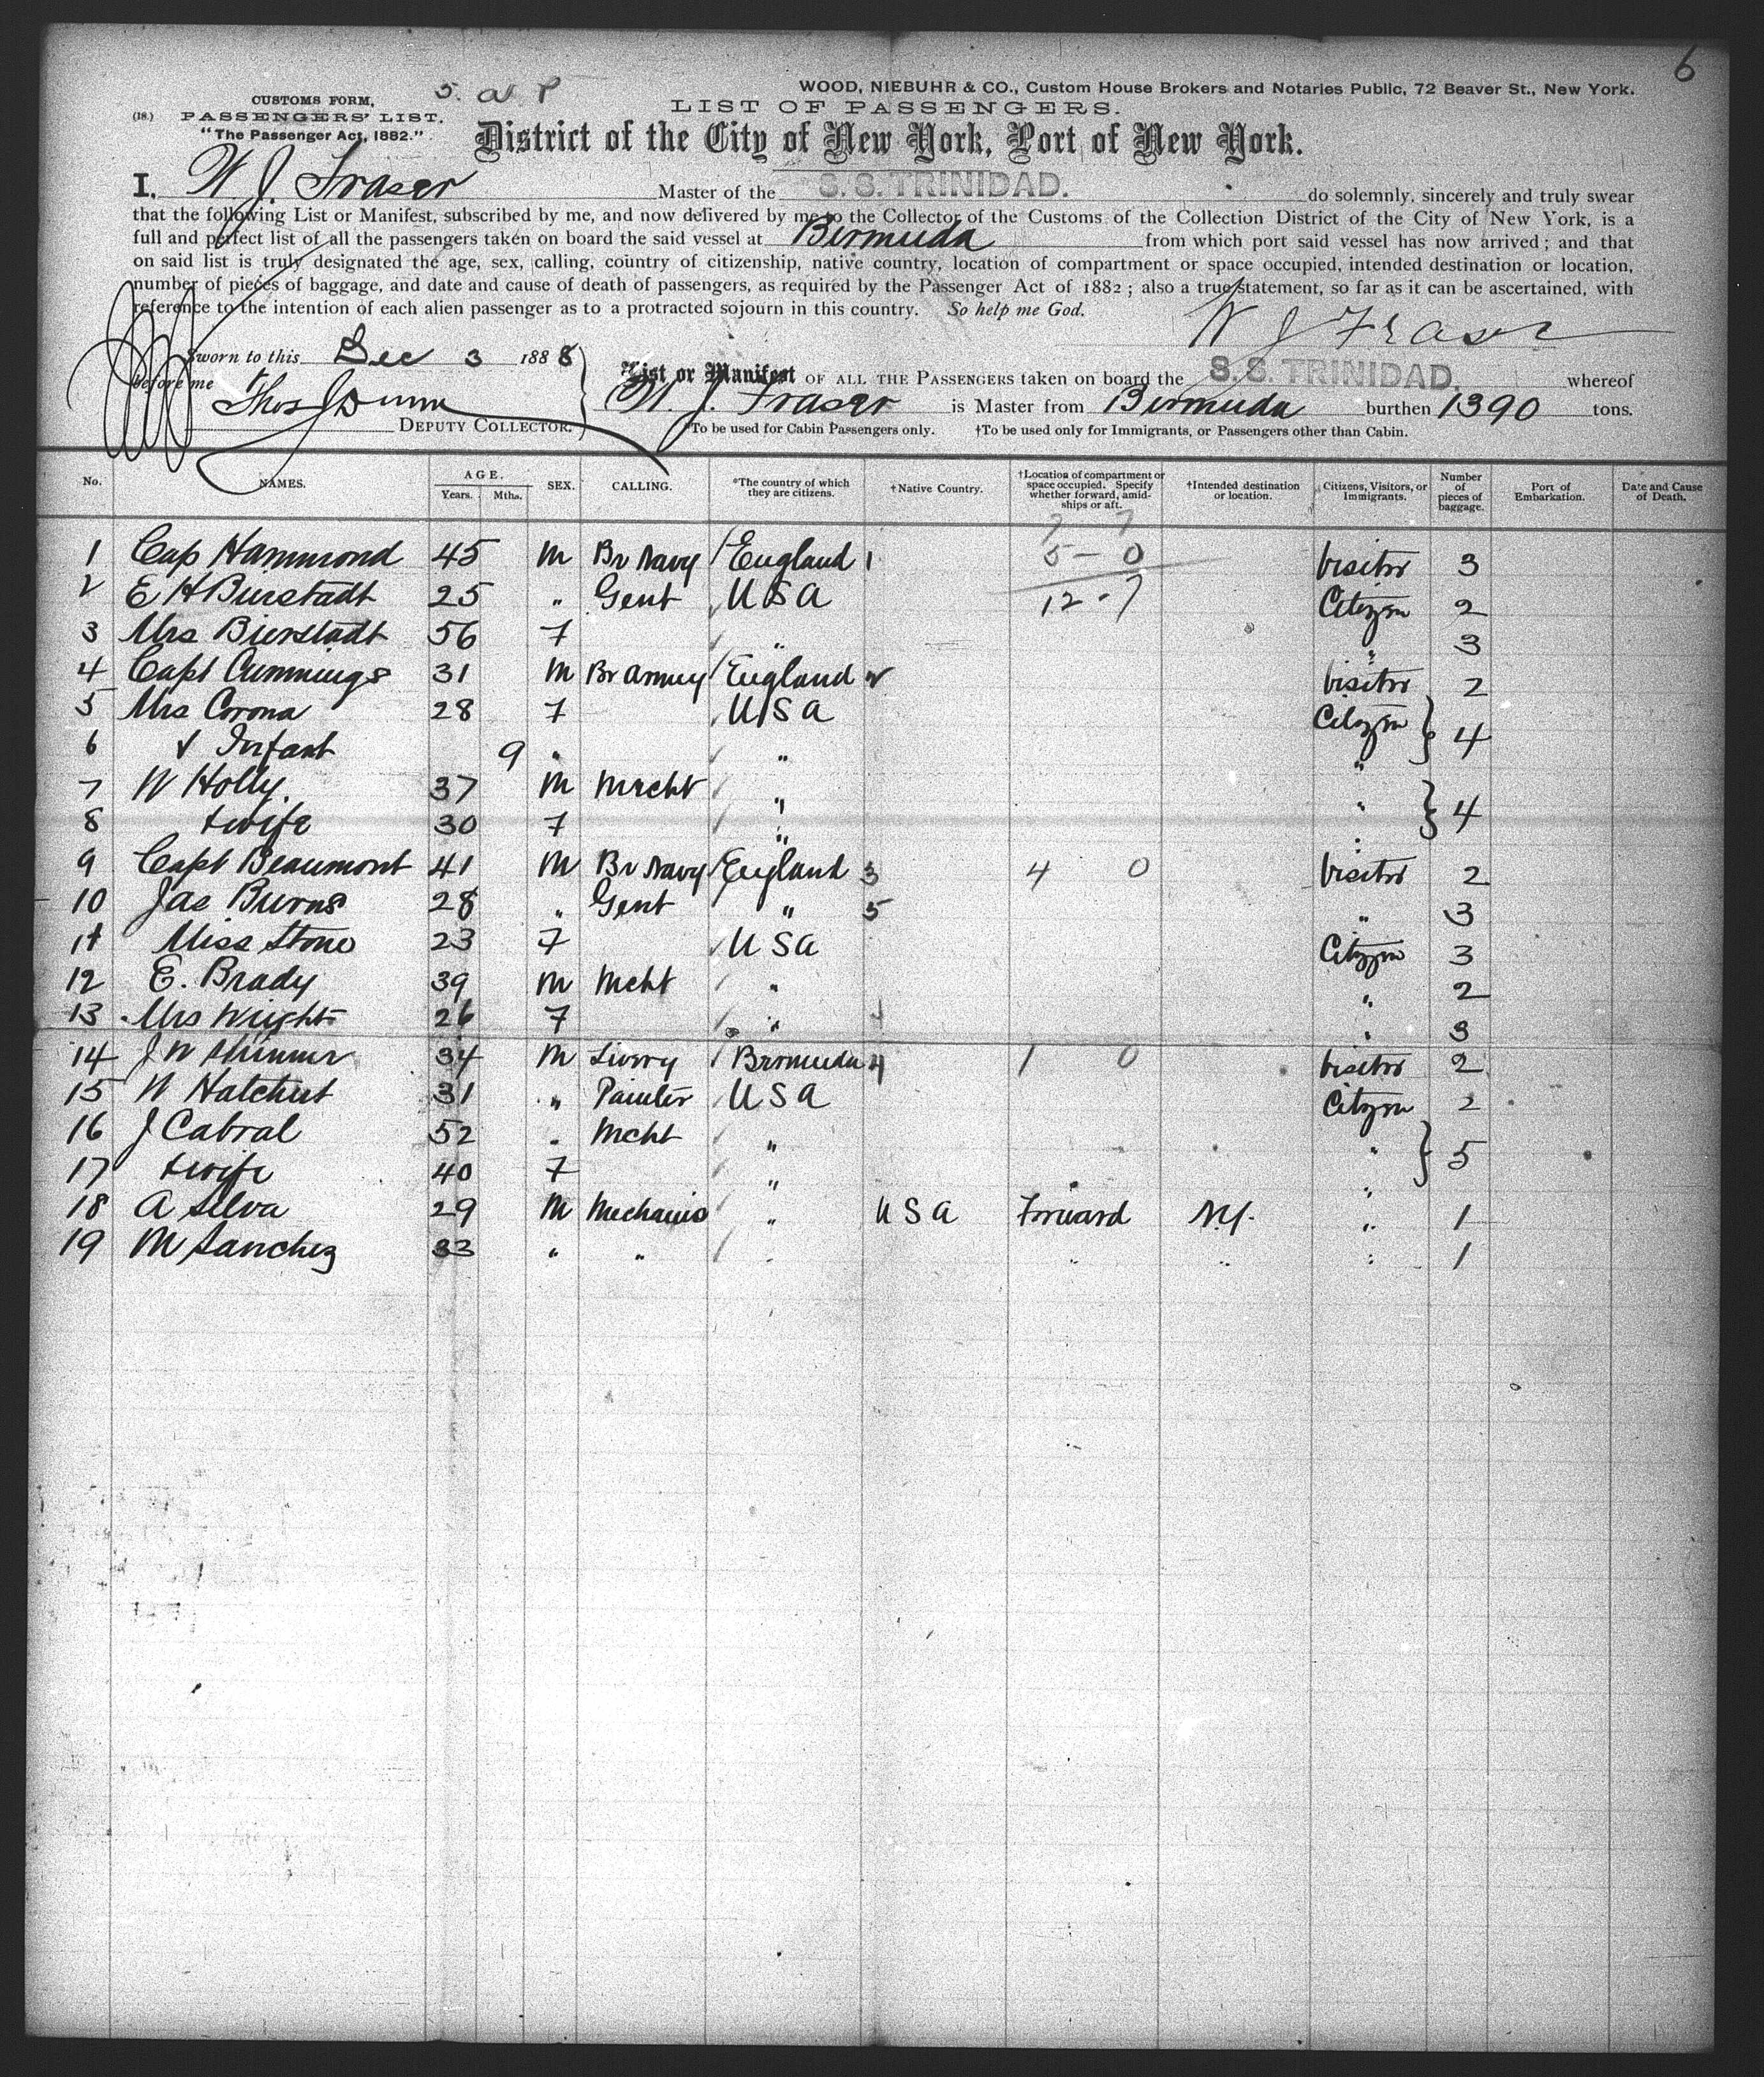 6
WOOD, NIEBUHR & CO., Custom House Brokers and Notaries Public, 72 Beaver St., New York.
CUSTOMS FORM,
LIST OF PASSENGERS.
(18.) PASSENGERS' LIST.
"The Passenger Act, 1882."
District of the City of New York, Port of New York.
I, W J Fraser Master of the S. S. TRINIDAD. do solemnly, sincerely and truly swear
that the following List or Manifest, subscribed by me, and now delivered by me to the Collector of the Customs of the Collection District of the City of New York, is a
full and perfect list of all the passengers taken on board the said vessel at Bermuda from which port said vessel has now arrived; and that
on said list is truly designated the age, sex, calling, country of citizenship, native country, location of compartment or space occupied, intended destination or location,
number of pieces of baggage, and date and cause of death of passengers, as required by the Passenger Act of 1882; also a true statement, so far as it can be ascertained, with
reference to the intention of each alien passenger as to a protracted sojourn in this country. So help me God.
W J Fraser
Sworn to this Dec 3 1888
before me
Thos J Dunn
DEPUTY COLLECTOR.
List or Manifest OF ALL THE PASSENGERS taken on board the S. S. TRINIDAD. whereof
W. J. Fraser is Master from Bermuda burthen 1390 tons.
*To be used for Cabin Passengers only. †To be used only for Immigrants, or Passengers other than Cabin.
No. NAMES. AGE. Years. Mths. SEX. CALLING. *The country of which they are citizens. †Native Country. †Location of compartment or space occupied. Specify whether forward, amidships or aft. †Intended destination or location. Citizens, Visitors, or Immigrants. Number of pieces of baggage. Port of Embarkation. Date and Cause of Death.
1 Cap Hammond 45 M Br Navy England 1 5 - 0 Visitor 3
2 E H Bierstadt 25 " Gent USA 12 - 7 Citizen 2
3 Mrs Bierstadt 56 F " " 3
4 Capt Cummings 31 M Br Army England 2 Visitor 2
5 Mrs Corona 28 F USA Citizen
6 & Infant 9 " " " 4
7 W Holly. 37 M Mrcht " "
8 & wife 30 F " " 4
9 Capt Beaumont 41 M Br Navy England 3 4 0 Visitor 2
10 Jas Burns 28 " Gent " 5 " 3
11 Miss Stone 23 F USA Citizen 3
12 E. Brady 39 M Mcht " " 2
13 Mrs Wright 26 F " " 3
14 J W Skinner 34 M Livery Bermuda 4 1 0 Visitor 2
15 W Hatchut 31 " Painter USA Citizen 2
16 J Cabral 52 " Mcht " "
17 & wife 40 F " " 5
18 A Silva 29 M Mechanic " USA Forward N.Y. " 1
19 M Sanchez 33 " " " " " " 1